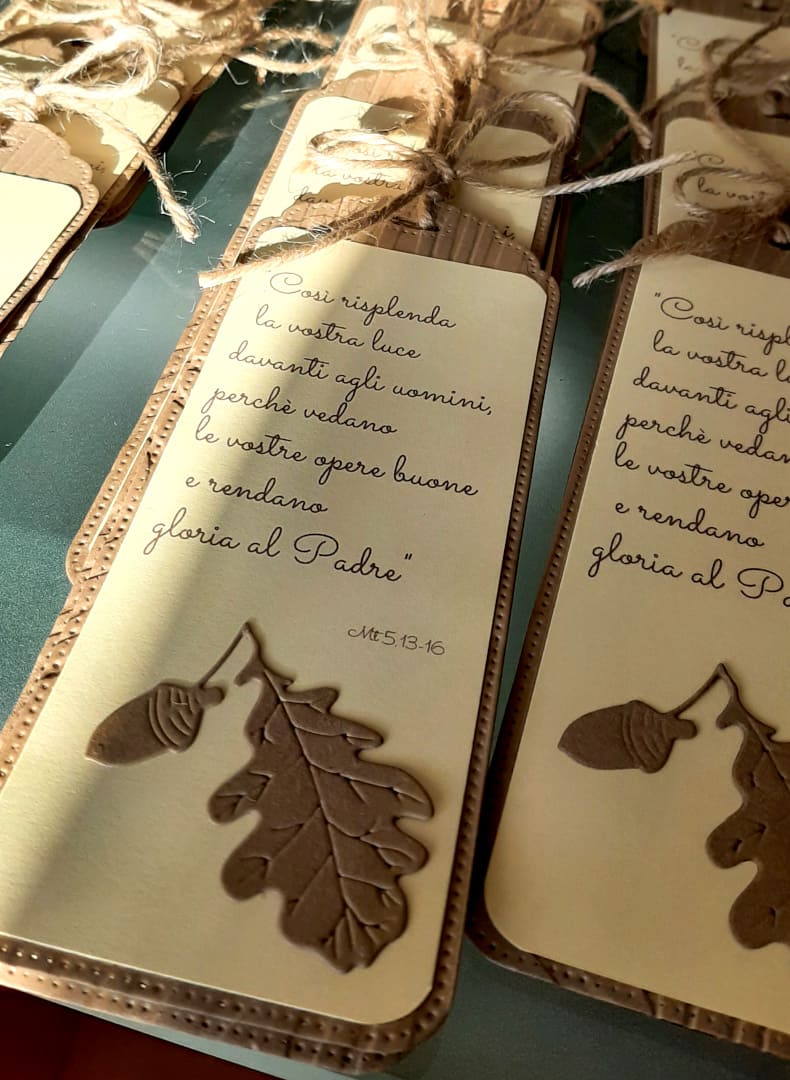 "Così risplenda
la vostra luce
davanti agli uomini,
perchè vedano
le vostre opere buone
e rendano
gloria al Padre"
Mt 5,13-16
"Così rispl
la vostra l
davanti agli
perchè vedan
le vostre oper
e rendano
gloria al Pa